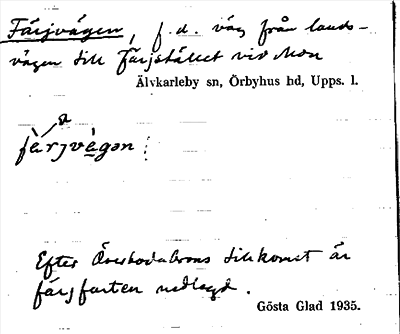 Färjvägen, f. d. väg från lands-
vägen till färjstället vid Mon
Älvkarleby sn, Örbyhus hd, Upps. l.
a
färjvẹgən :
Efter Överbodabrons tillkomst är
färjfarten nedlagd.
Gösta Glad 1935.